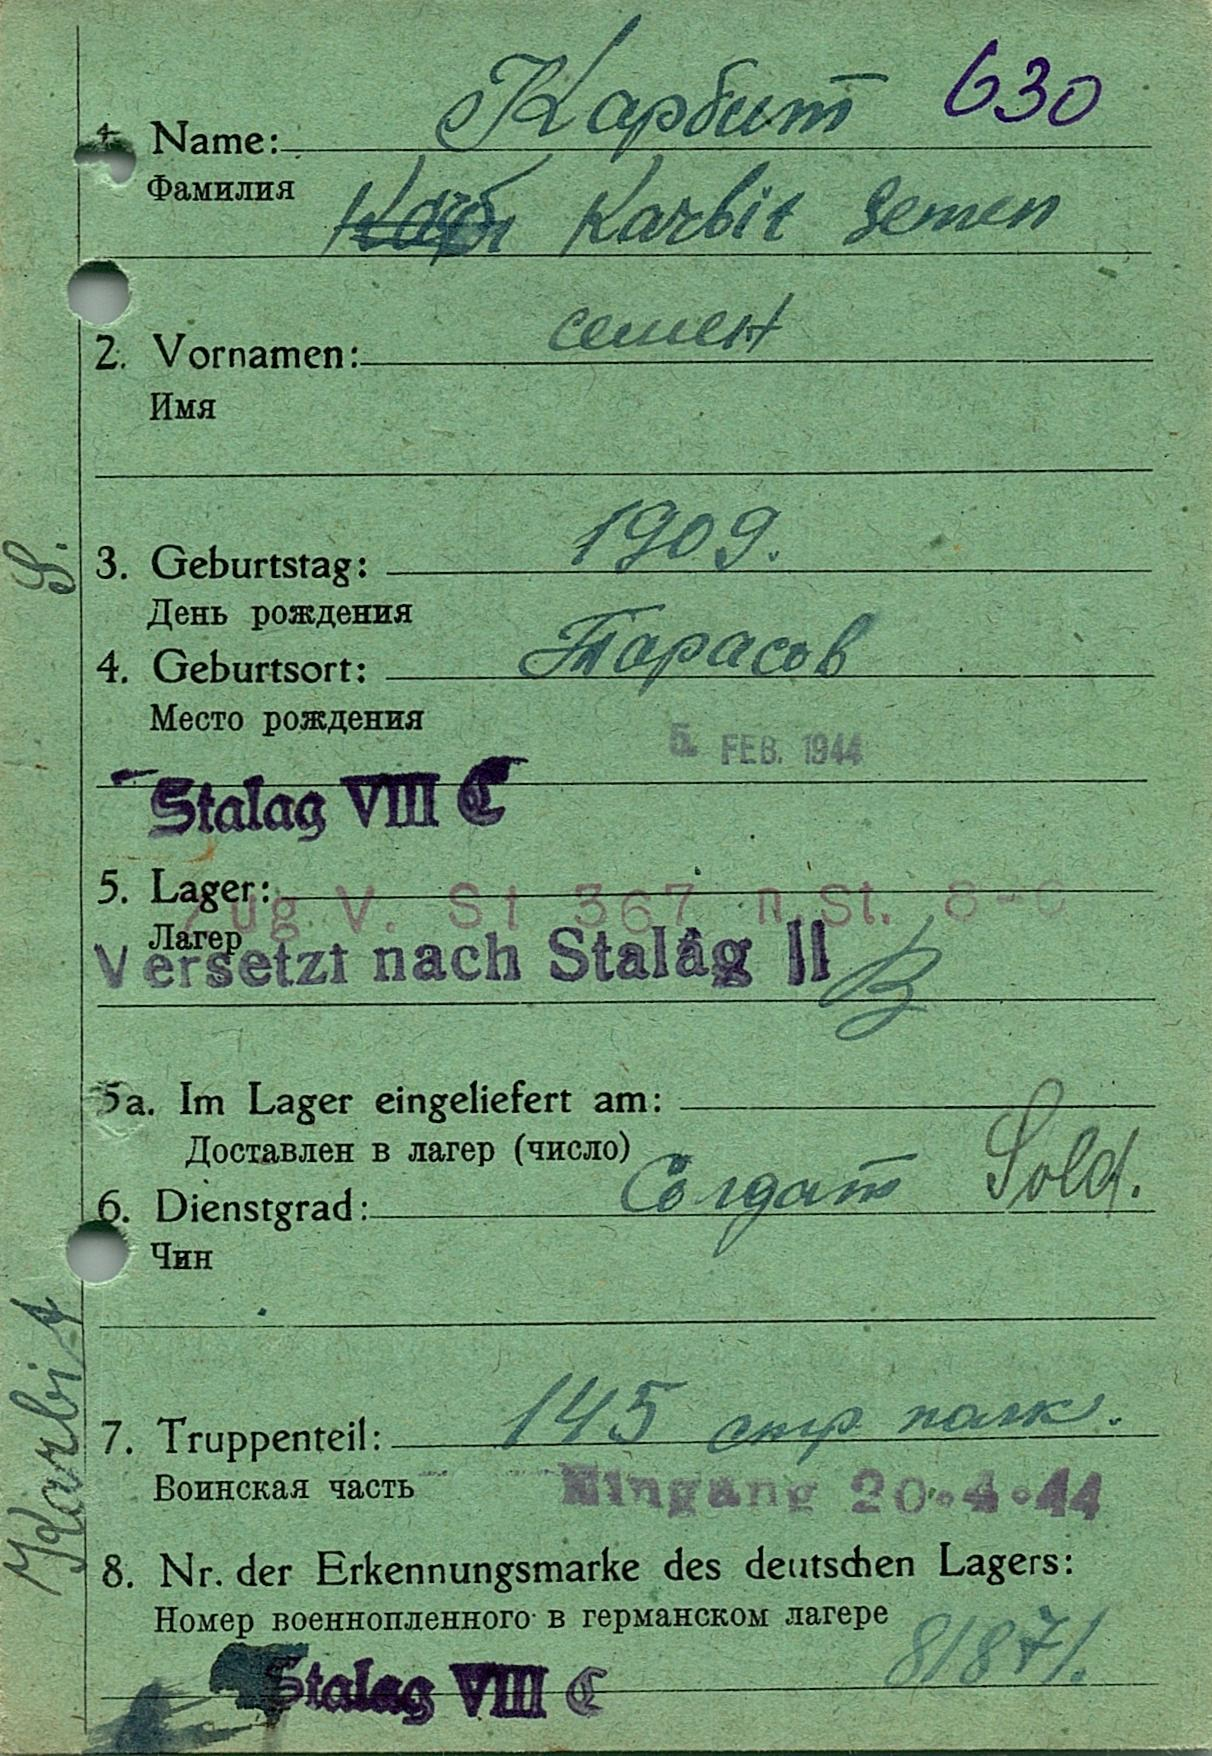 Карбит 630
1. Name:
Фамилия
Karbit Semen
семен
2. Vornamen:
Имя
1909.
3. Geburtstag:
День рождения
Тарасов
4. Geburtsort:
Место рождения
5. FEB. 1944
Stalag VIII C
5. Lager:
Zug V. St 367 n. St. 8-C
Лагер
Versetzt nach Stalag II B
5a. Im Lager eingeliefert am:
Доставлен в лагер (число)
Солдат Sold.
6. Dienstgrad:
Чин
145 стр полк.
7. Truppenteil:
Воинская часть
Eingang 20.4.44
8. Nr. der Erkennungsmarke des deutschen Lagers:
Номер военнопленного в германском лагере
81871.
Stalag VIII C
Karbit S.